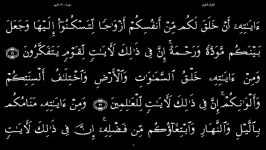 ءَايَـٰتِهِۦٓ أَنْ خَلَقَ لَكُم مِّنْ أَنفُسِكُمْ أَزْوَٰجًا لِّتَسْكُنُوٓا۟ إِلَيْهَا وَجَعَلَ
بَيْنَكُم مَّوَدَّةً وَرَحْمَةً ۚ إِنَّ فِى ذَٰلِكَ لَـَٔايَـٰتٍ لِّقَوْمٍ يَتَفَكَّرُونَ
وَمِنْ ءَايَـٰتِهِۦ خَلْقُ ٱلسَّمَـٰوَٰتِ وَٱلْأَرْضِ وَٱخْتِلَـٰفُ أَلْسِنَتِكُمْ
وَأَلْوَٰنِكُمْ ۚ إِنَّ فِى ذَٰلِكَ لَـَٔايَـٰتٍ لِّلْعَـٰلِمِينَ وَمِنْ ءَايَـٰتِهِۦ مَنَامُكُم
بِٱلَّيْلِ وَٱلنَّهَارِ وَٱبْتِغَآؤُكُم مِّن فَضْلِهِۦٓ ۚ إِنَّ فِى ذَٰلِكَ لَـَٔايَـٰتٍ